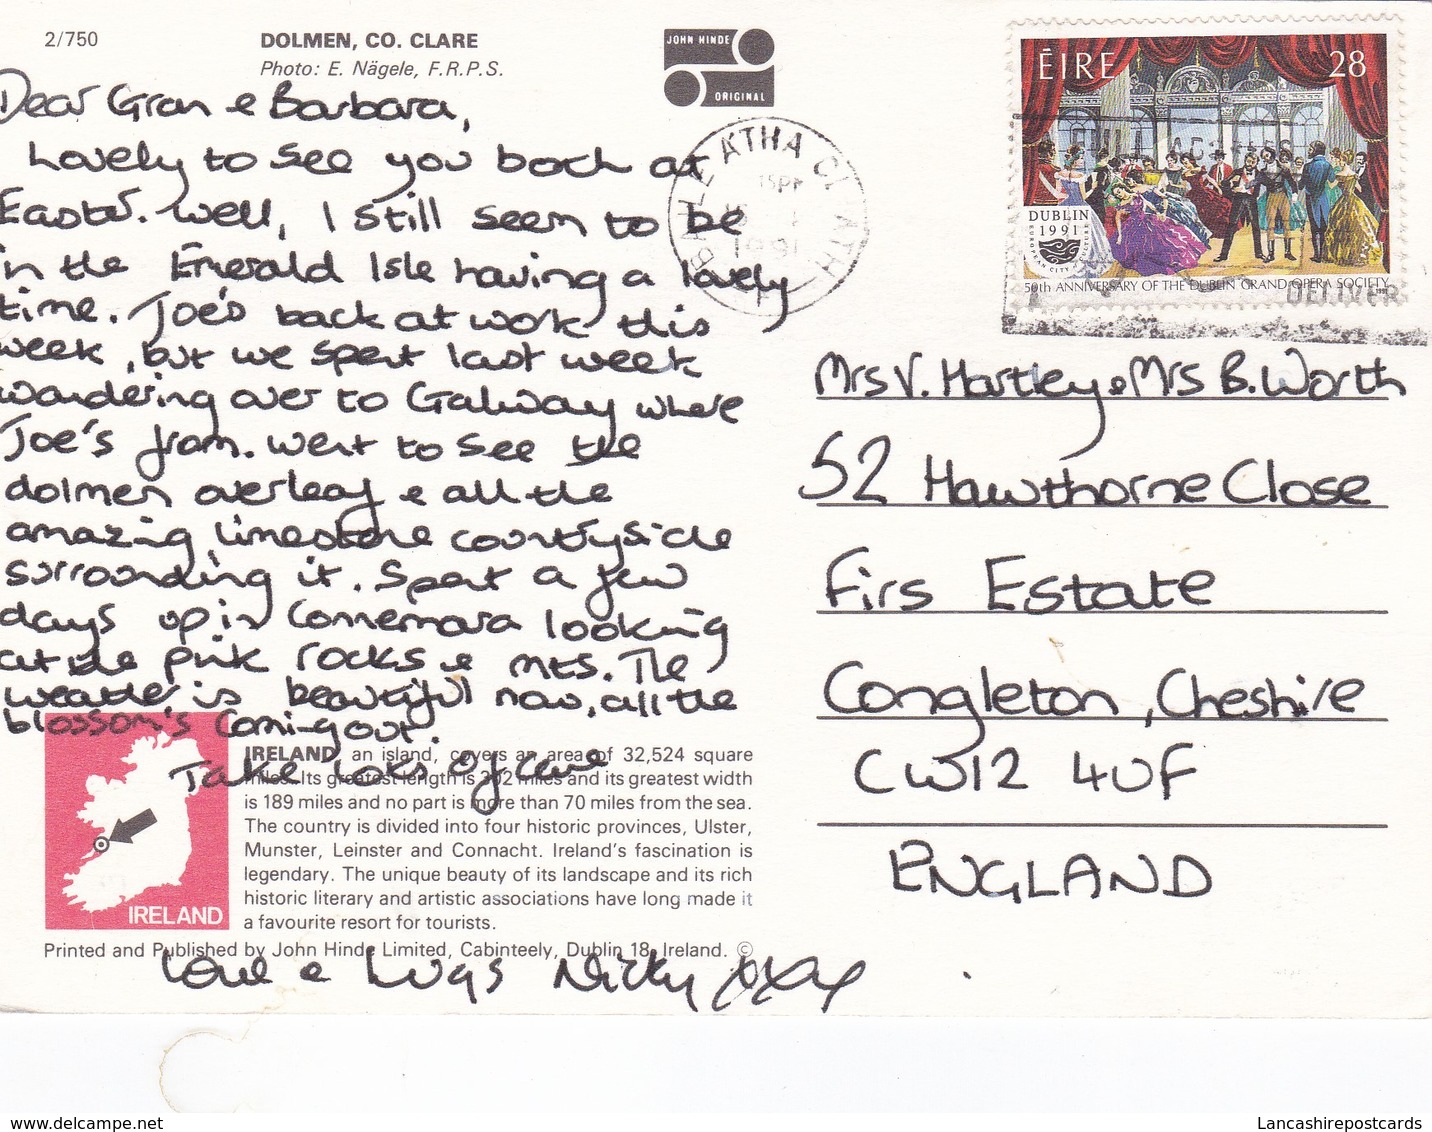 2/750
DOLMEN, CO. CLARE
Photo: E. Nägele, F.R.P.S.
JOHN HINDE
ORIGINAL
Dear Gran & Barbara,
Lovely to see you both at
Easter. Well, I still seem to be
in the Emerald Isle having a lovely
time. Joe's back at work this
week, but we spent last week
wandering over to Galway where
Joe's from. Went to see the
dolmen overleaf & all the
amazing limestone countryside
surrounding it. Spent a few
days up in Connemara looking
at the pink rocks & mts. The
weather is beautiful now, all the
blossom's coming out.
Take lots of care
Love & hugs Nicky xxxx
IRELAND, an island, covers an area of 32,524 square
miles. Its greatest length is 302 miles and its greatest width
is 189 miles and no part is more than 70 miles from the sea.
The country is divided into four historic provinces, Ulster,
Munster, Leinster and Connacht. Ireland's fascination is
legendary. The unique beauty of its landscape and its rich
historic literary and artistic associations have long made it
a favourite resort for tourists.
IRELAND
Printed and Published by John Hinde Limited, Cabinteely, Dublin 18, Ireland. ©
BAILE ÁTHA CLIATH
1991
ÉIRE 28
DUBLIN
1991
EUROPEAN CITY OF CULTURE
50th ANNIVERSARY OF THE DUBLIN GRAND OPERA SOCIETY
DELIVER
Mrs V. Hartley & Mrs B. Worth
52 Hawthorne Close
Firs Estate
Congleton, Cheshire
CW12 4UF
ENGLAND
www.delcampe.net
Lancashirepostcards